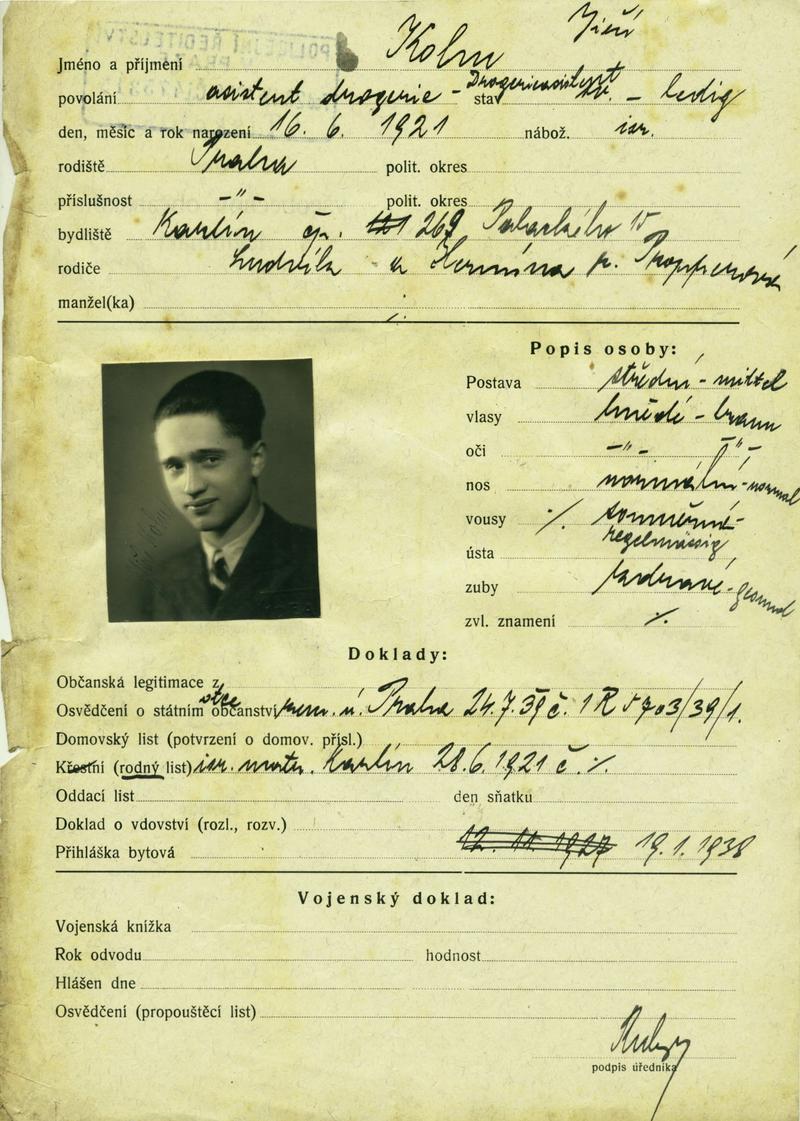 Jméno a příjmení Kohn Jiří
povolání asistent drogerie - Drogerieasistent stav sv. - ledig
den, měsíc a rok narození 16. 6. 1921 nábož. isr.
rodiště Praha polit. okres
příslušnost -"- polit. okres
bydliště Karlín čp. 269 Palackého 15
rodiče Ludvík a Hermína r. Propperová
manžel(ka) ./.
Popis osoby:
Postava střední - mittel
vlasy hnědé - braun
oči -"- -"-
nos normální - normal
vousy ./.
ústa souměrné - regelmässig
zuby zdravé - gesund
zvl. znamení ./.
Doklady:
Občanská legitimace z
Osvědčení o státním občanství otce zem. ú. Praha 24.7.39 č. 1 R 5703/39/1.
Domovský list (potvrzení o domov. přísl.)
Křestní (rodný list) isr. matr. Karlín 28.6.1921 č. ./.
Oddací list den sňatku
Doklad o vdovství (rozl., rozv.)
Přihláška bytová 12. 11. 1927 19.1.1938
Vojenský doklad:
Vojenská knížka
Rok odvodu hodnost
Hlášen dne
Osvědčení (propouštěcí list)
podpis úředníka